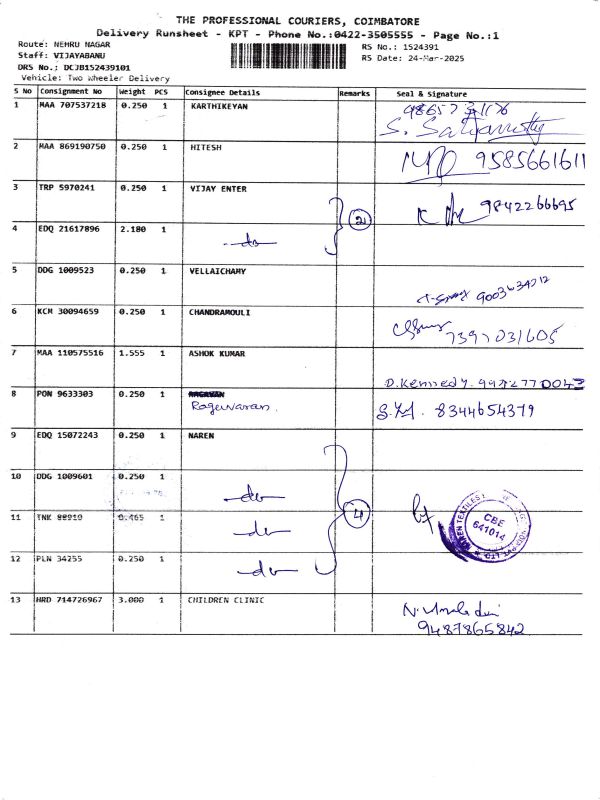 THE PROFESSIONAL COURIERS, COIMBATORE
Delivery Runsheet - KPT - Phone No.:0422-3505555 - Page No.:1
Route: NEHRU NAGAR
RS No.: 1524391
Staff: VIJAYABANU
RS Date: 24-Mar-2025
DRS No.: DCJB152439101
Vehicle: Two Wheeler Delivery
S No Consignment No Weight PCS Consignee Details Remarks Seal & Signature
1 MAA 707537218 0.250 1 KARTHIKEYAN
2 MAA 869190750 0.250 1 HITESH 9585661611
3 TRP 5970241 0.250 1 VIJAY ENTER 9842266695
2
4 EDQ 21617896 2.180 1 -do-
5 DDG 1009523 0.250 1 VELLAICHAMY
6 KCM 30094659 0.250 1 CHANDRAMOULI 7397031605
7 MAA 110575516 1.555 1 ASHOK KUMAR
D. Kennedy.
8 PON 9633303 0.250 1 RAGAVAN
Raguvaran. 8344654379
9 EDQ 15072243 0.250 1 NAREN
10 DDG 1009601 0.250 1 -do-
11 TNK 88910 0.465 1 -do- 4
CBE
641014
12 PLN 34255 0.250 1 -do-
13 HRD 714726967 3.000 1 CHILDREN CLINIC
9487865842